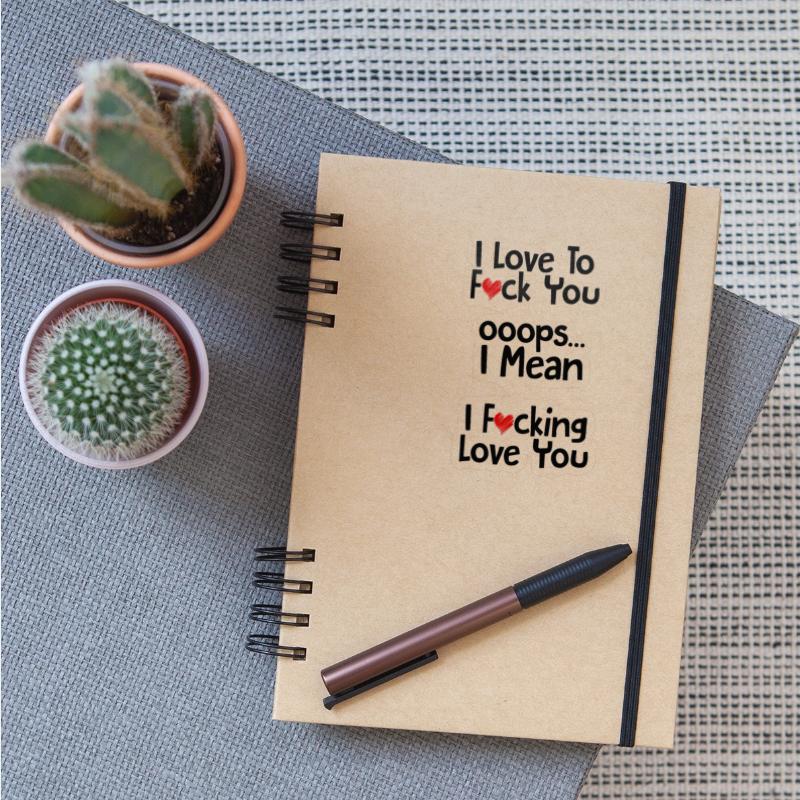 I Love To
F❤ck You
ooops...
I Mean
I F❤cking
Love You